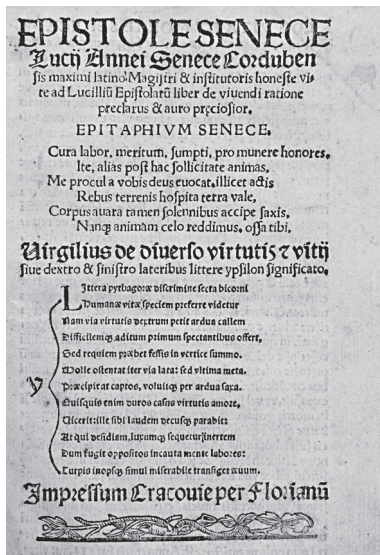 EPISTOLE SENECE
Lucij Annei Senece Corduben
sis maximi latino⁊ Magistri & institutoris honeste vi⸗
te ad Lucilliū Epistolarū liber de viuendi ratione
preclarus & auro pręciosior.
EPITAPHIVM SENECE.
Cura labor, meritum, sumpti, pro munere honores,
Ite, alias post hac sollicitate animas,
Me procul a vobis deus euocat, illicet actis
Rebus terrenis hospita terra vale,
Corpus auara tamen solennibus accipe saxis,
Nanq; animam celo reddimus, ossa tibi,
Virgilius de diuerso virtutis ⁊ vitij
siue dextro & sinistro lateribus littere ypsilon significato.
LIttera pythagoræ discrimine secta bicorni
Humanæ vitæ speciem preferre videtur
Nam via virtutis dextrum petit ardua callem
Difficilemq; aditum primum spectantibus offert,
Sed requiem præbet fessis in vertice summo.
Molle ostentat iter via lata: sed vltima meta.
y Præcipitat captos, voluitq; per ardua saxa.
Quisquis enim duros casus virtutis amore,
Vicerit: ille sibi laudem decusq; parabit:
At qui desidiam, luxumq; sequetur inertem
Dum fugit oppositos incauta mente labores:
Turpis inopsq; simul miserabile transiget æuum.
Impressum Cracouie per Florianū